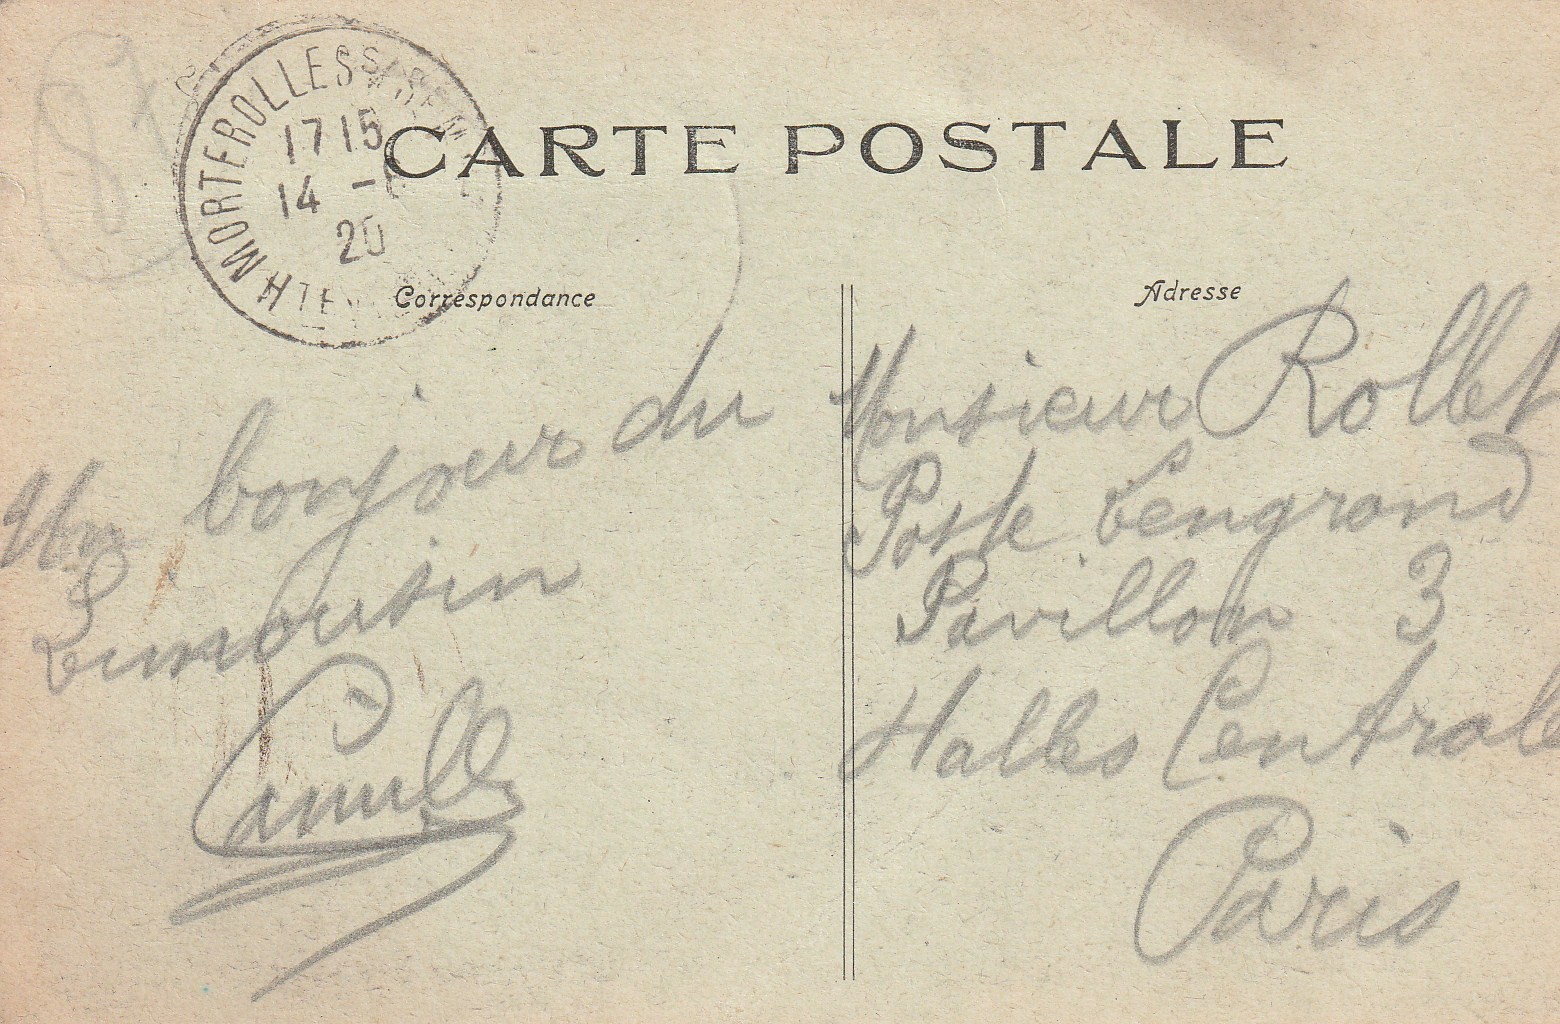 87
MORTEROLLES S/ SEM
17 15
14 -
20
HTE VIENNE
CARTE POSTALE
Correspondance
Adresse
Un bonjour du
Limousin
Camille
Monsieur Rollet
Poste Lengrand
Pavillon 3
Halles Centrale
Paris